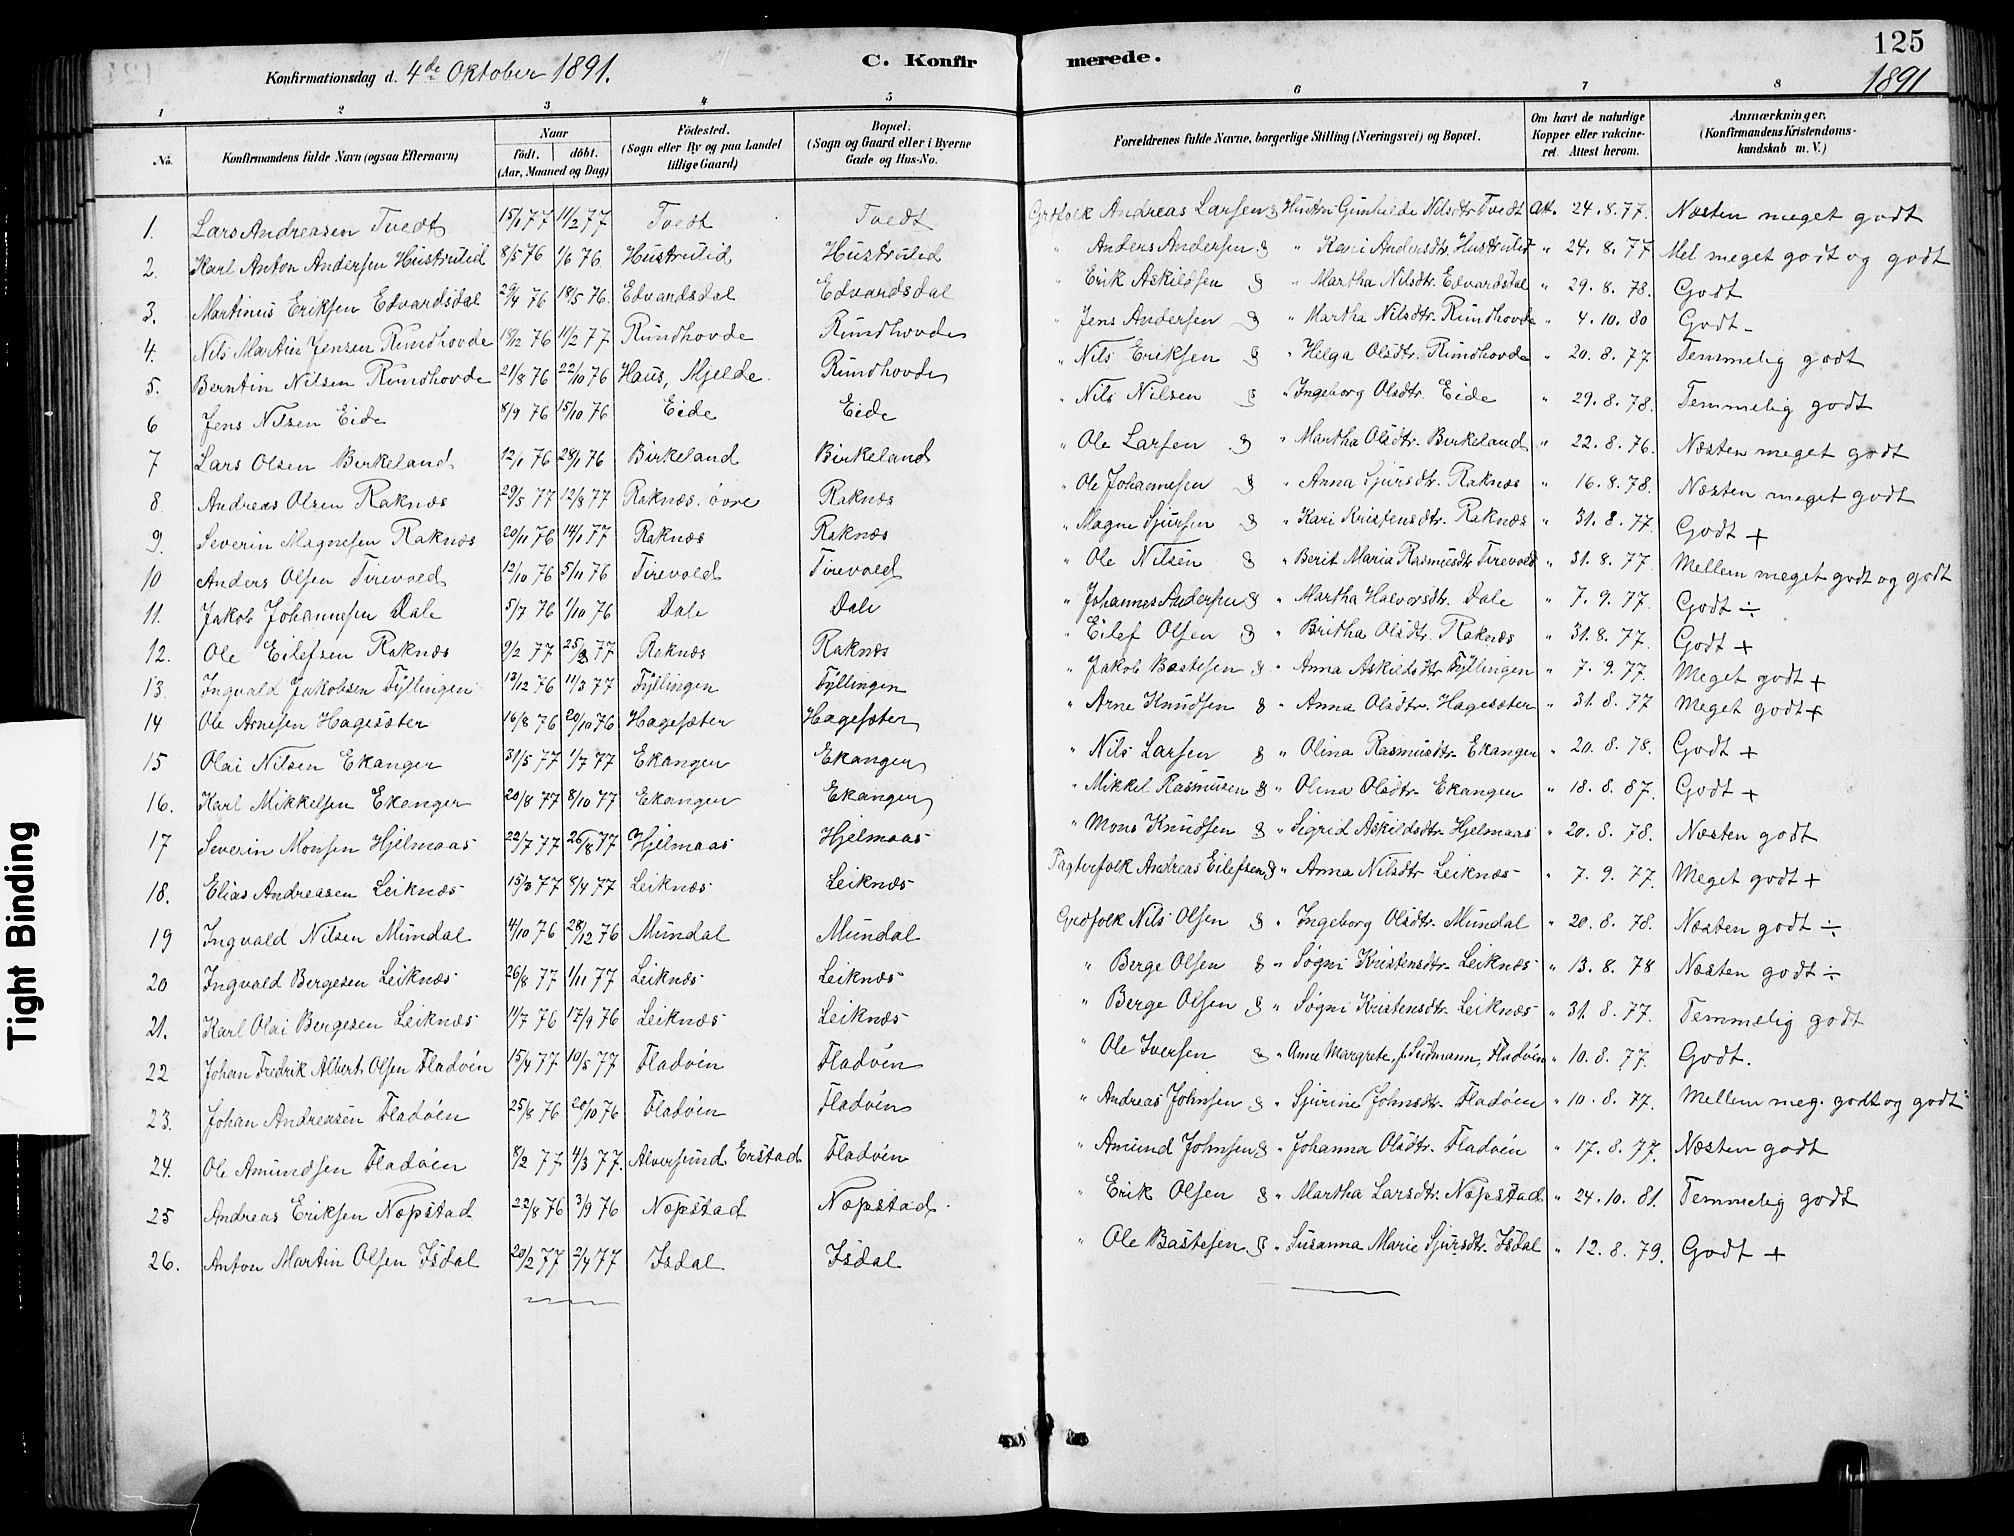 125
Konfirmationsdag d. 4de Oktober 1891. C. Konfirmerede. 1891
1 2 3 4 5 6 7 8
No. Konfirmandens fulde Navn (ogsaa Efternavn) Naar födt. döbt. (Aar, Maaned og Dag) Födested. (Sogn eller By og paa Landet tillige Gaard) Bopæl. (Sogn og Gaard eller i Byerne Gade og Hus-No. Forældrenes fulde Navne, borgerlige Stilling (Næringsvei) og Bopæl. Om havt de naturlige Kopper eller vakcineret. Attest herom. Anmærkninger. (Konfirmandens Kristendomskundskab m. V.)
1. Lars Andreasen Tvedt 15/1 77 11/2 77 Tvedt Tvedt Grdfolk Andreas Larsen & Hustru Gunhilde Nilsdtr Tvedt Att. 24.8.77. Næsten meget godt
2. Karl Anton Andersen Hustrulid 8/5 76 1/6 76. Hustrulid Hustrulid " Anders Andersen & " Kari Andersdtr. Hustrulid " 24.8.77 Mel meget godt og godt
3. Martinus Eriksen Edvardsdal 29/4 76 18/5 76. Edvardsdal Edvardsdal " Erik Askildsen & " Martha Nilsdtr. Edvardsdal " 29.8.78. Godt
4. Nils Martin Jensen Rundhovde 18/12 76 11/2 77 Rundhovde Rundhovde " Jens Andersen & " Martha Nilsdtr. Rundhovde " 4.10.80 Godt -
5. Berntin Nilsen Rundhovde 21/8 76 22/10 76 Haus, Mjelde. Rundhovde " Nils Eriksen & " Helga Olsdtr. Rundhovde " 20.8.77 Temmelig godt
6 Jens Nilsen Eide 8/9 76 15/10 76 Eide Eide " Nils Nilsen & " Ingeborg Olsdtr. Eide " 29.8.78. Temmelig godt
7 Lars Olsen Birkeland 12/1 76 28/1 76 Birkeland Birkeland " Ole Larsen & " Martha Olsdtr. Birkeland " 22.8.76. Næsten meget godt
8 Andreas Olsen Raknæs 29/5 77 12/8 77 Raknæs. övre Raknæs " Ole Johannesen & " Anna Sjursdtr. Raknæs " 16.8.78. Næsten meget godt
9. Severin Magnesen Raknæs 20/11 76 14/1 77 Raknæs Raknæs " Magne Sjursen & " Kari Kristensdtr. Raknæs " 31.8.77. Godt +
10 Anders Olsen Tirevold 12/10 76 5/11 76 Tirevold Tirevold " Ole Nilsen & " Berit Maria Rasmusdtr Tirevold " 31.8.77. Mellem meget godt og godt
11. Jakob Johannesen Dale 5/7 76 1/10 76 Dale Dale " Johannes Andersen & " Martha Halvorsdtr. Dale " 7.9.77. Godt ÷
12. Ole Eilefsen Raknæs 9/2 77 25/3 77 Raknæs Raknæs " Eilef Olsen & " Britha Olsdtr. Raknæs " 31.8.77. Godt +
13. Ingvald Jakobsen Fyllingen 13/12 76 11/3 77 Fyllingen Fyllingen " Jakob Bastesen & " Anna Askildsdtr Fyllingen " 7.9.77. Meget godt +
14 Ole Arnesen Hagesæter 16/8 76 20/10 76 Hagesæter Hagesæter " Arne Knudsen & " Anna Olsdtr. Hagesæter " 31.8.77 Meget godt +
15 Olai Nilsen Ekanger 31/5 77 1/7 77 Ekanger Ekanger " Nils Larsen & " Olina Rasmusdtr. Ekanger " 20.8.78. Godt +
16. Karl Mikkelsen Ekanger 20/8 77 8/10 77 Ekanger Ekanger " Mikkel Rasmusen & " Olina Olsdtr. Ekanger " 18.8.87. Godt +
17 Severin Monsen Hjelmaas 22/7 77 26/8 77 Hjelmaas Hjelmaas " Mons Knudsen & " Sigrid Askildsdtr. Hjelmaas " 20.8.78. Næsten godt
18. Elias Andreasen Leiknæs 15/3 77 8/4 77 Leiknæs Leiknæs Pagterfolk Andreas Eilefsen & " Anna Nilsdtr Leiknæs " 7.9.77. Meget godt +
19 Ingvald Nilsen Mundal 4/10 76 28/12 76 Mundal Mundal Grdfolk Nils Olsen & " Ingeborg Olsdtr. Mundal " 20.8.78. Næsten godt ÷
20 Ingvald Bergesen Leiknæs 26/8 77 1/11 77 Leiknæs Leiknæs " Berge Olsen & " Søgni Kristensdtr. Leiknæs " 13.8.78 Næsten godt ÷
21. Karl Olai Bergesen Leiknæs 11/7 76 17/9 76 Leiknæs Leiknæs " Berge Olsen & " Søgni Kristensdtr. Leiknæs " 31.8.77. Temmelig godt
22 Johan Fredrik Albert Olsen Fladöen 15/4 77 10/5 77 Fladöen Fladöen " Ole Iversen & " Anne Margrete, f. Seidmann, Fladöen " 10.8.77. Godt.
23. Johan Andreasen Fladöen 25/8 76 20/10 76 Fladöen Fladöen " Andreas Johnsen & " Sjurine Johnsdtr. Fladöen " 10.8.77. Mellem meg. godt og godt
24. Ole Amundsen Fladöen 8/2 77 4/3 77. Alversund Erstad Fladöen " Amund Johnsen & " Johanna Olsdtr. Fladöen " 17.8.77. Næsten godt
25 Andreas Eriksen Nøpstad 22/8 76 3/9 76 Nøpstad Nøpstad. " Erik Olsen & " Martha Larsdtr. Nøpstad " 24.10.81. Temmelig godt
26. Anton Martin Olsen Isdal 20/2 77 2/4 77 Isdal Isdal " Ole Bastesen & " Susanna Marie Sjursdtr. Isdal " 12.8.79. Godt +
Tight Binding